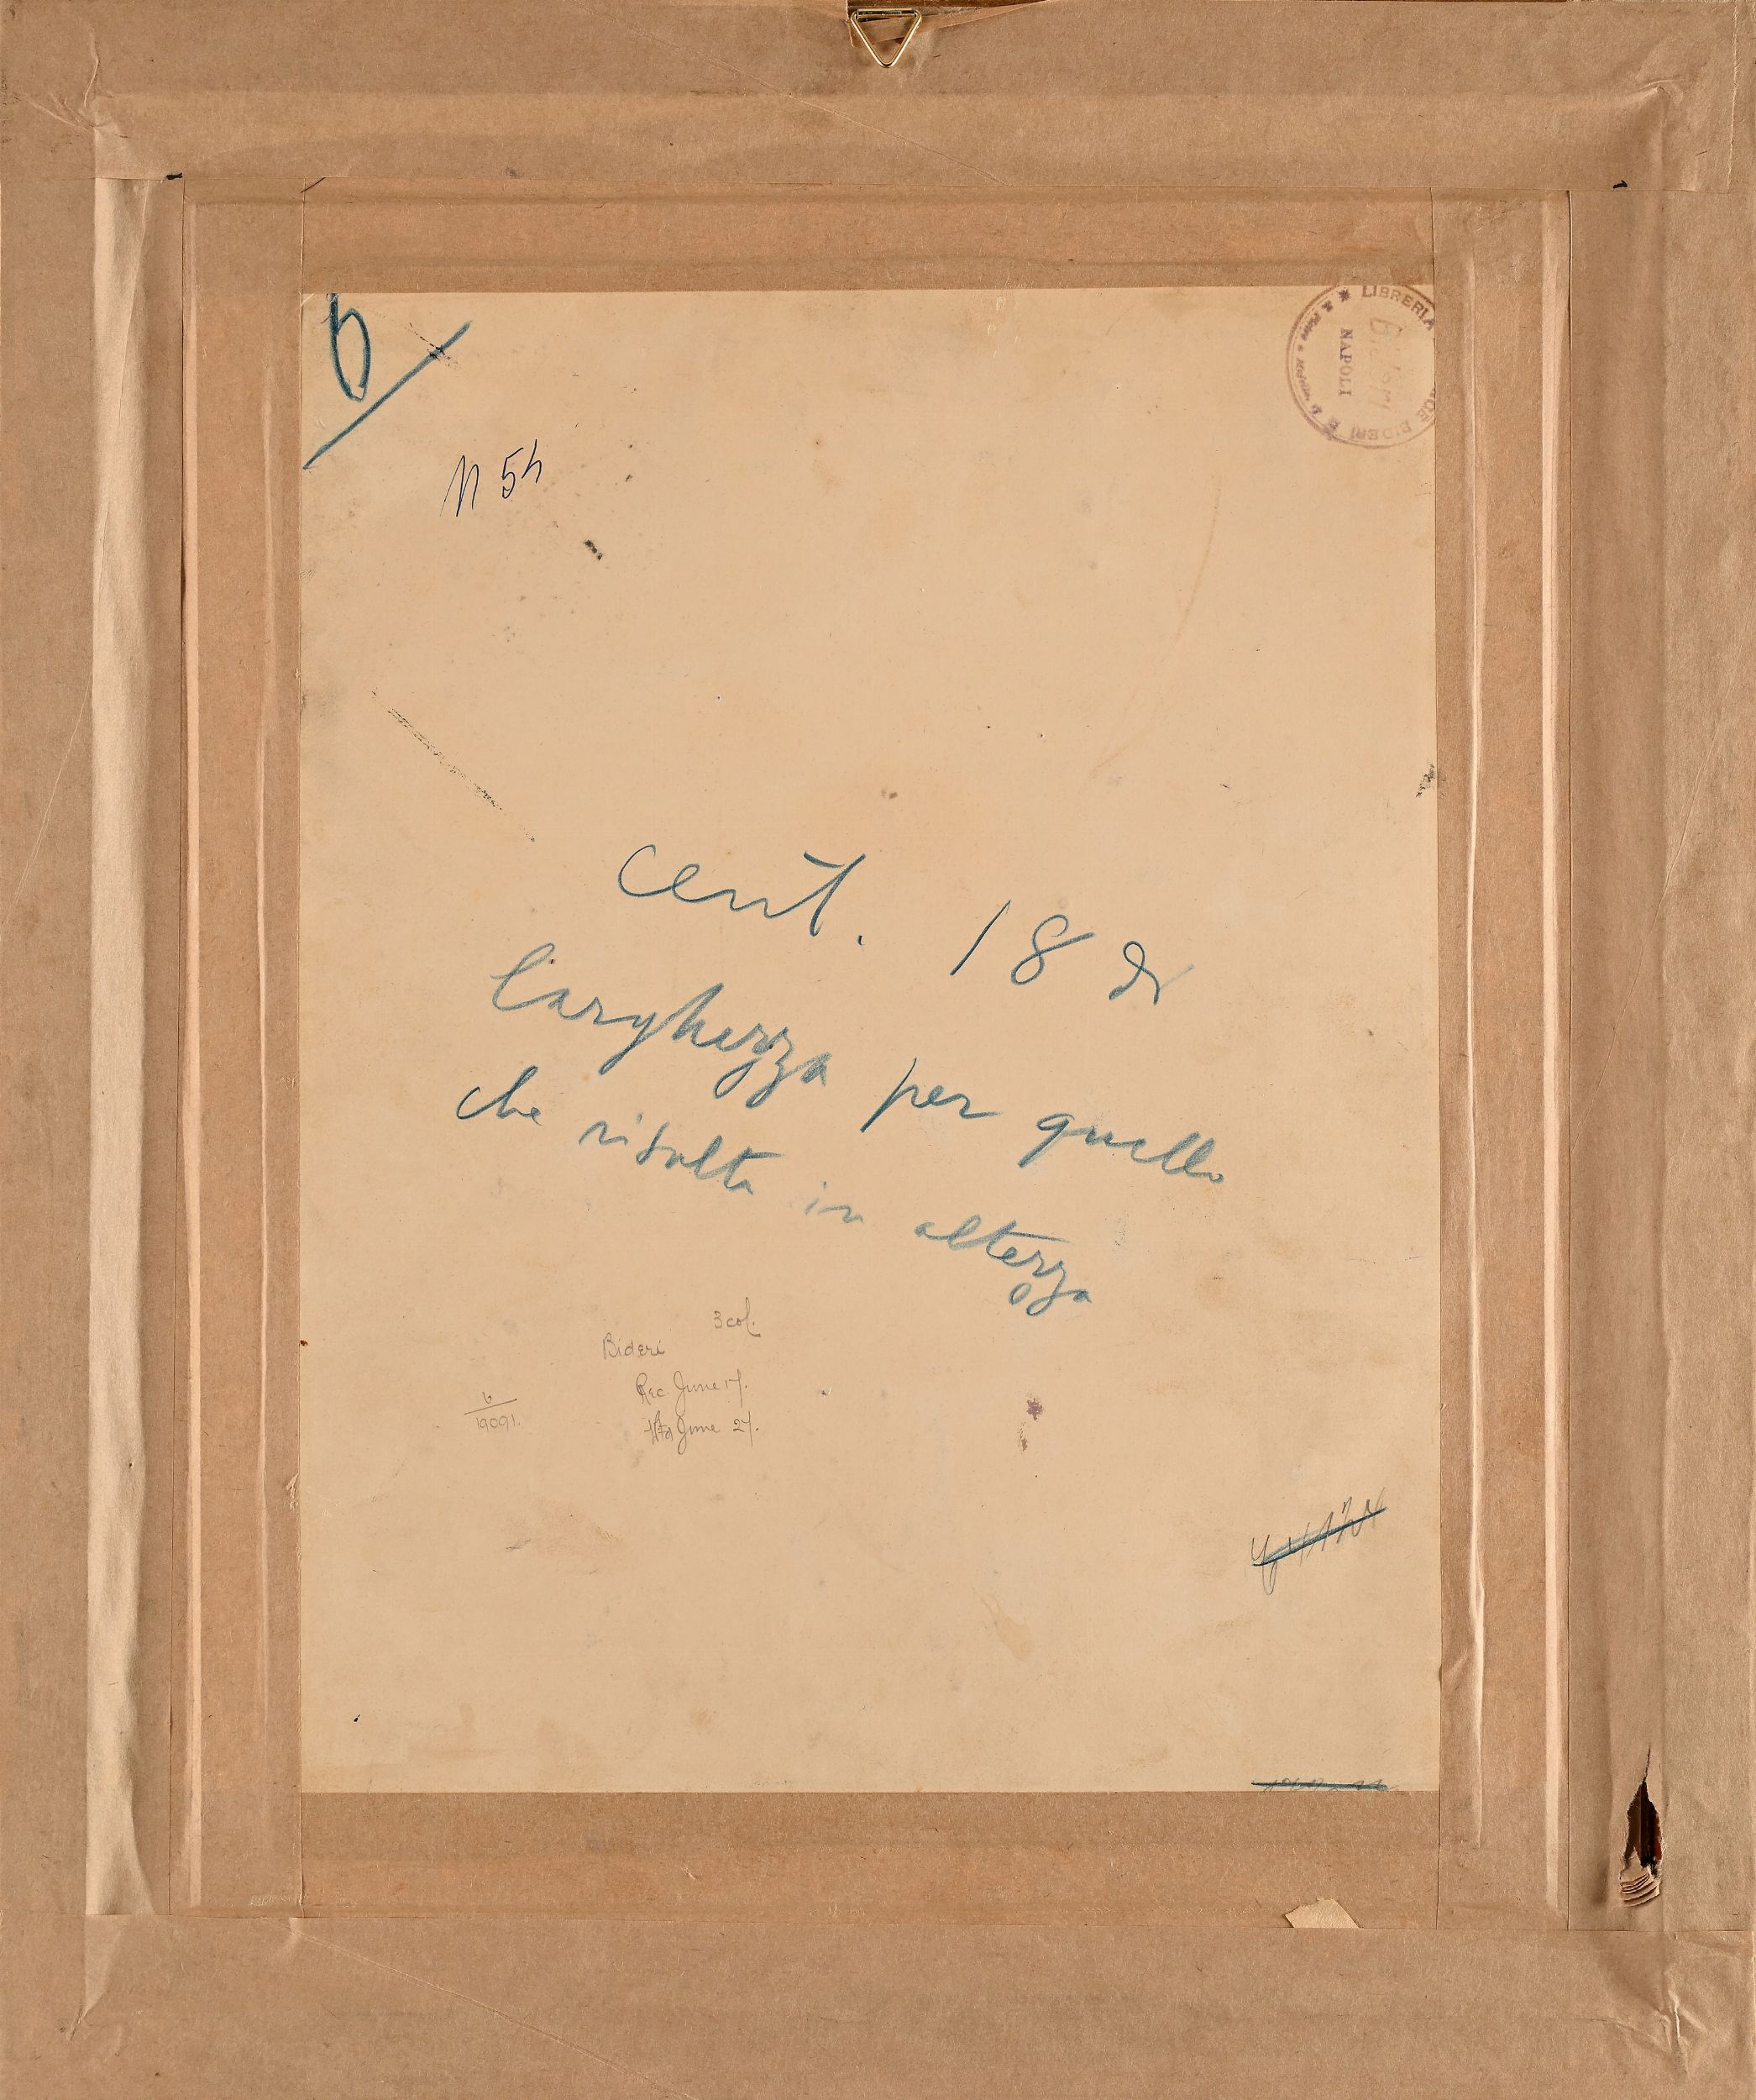 6
LIBRERIA
BIDERI
NAPOLI
N 54
cent. 18 di
larghezza per quello
che risulta in altezza
3 col.
Bideri
Rec June 17.
June 27.
6
19091.